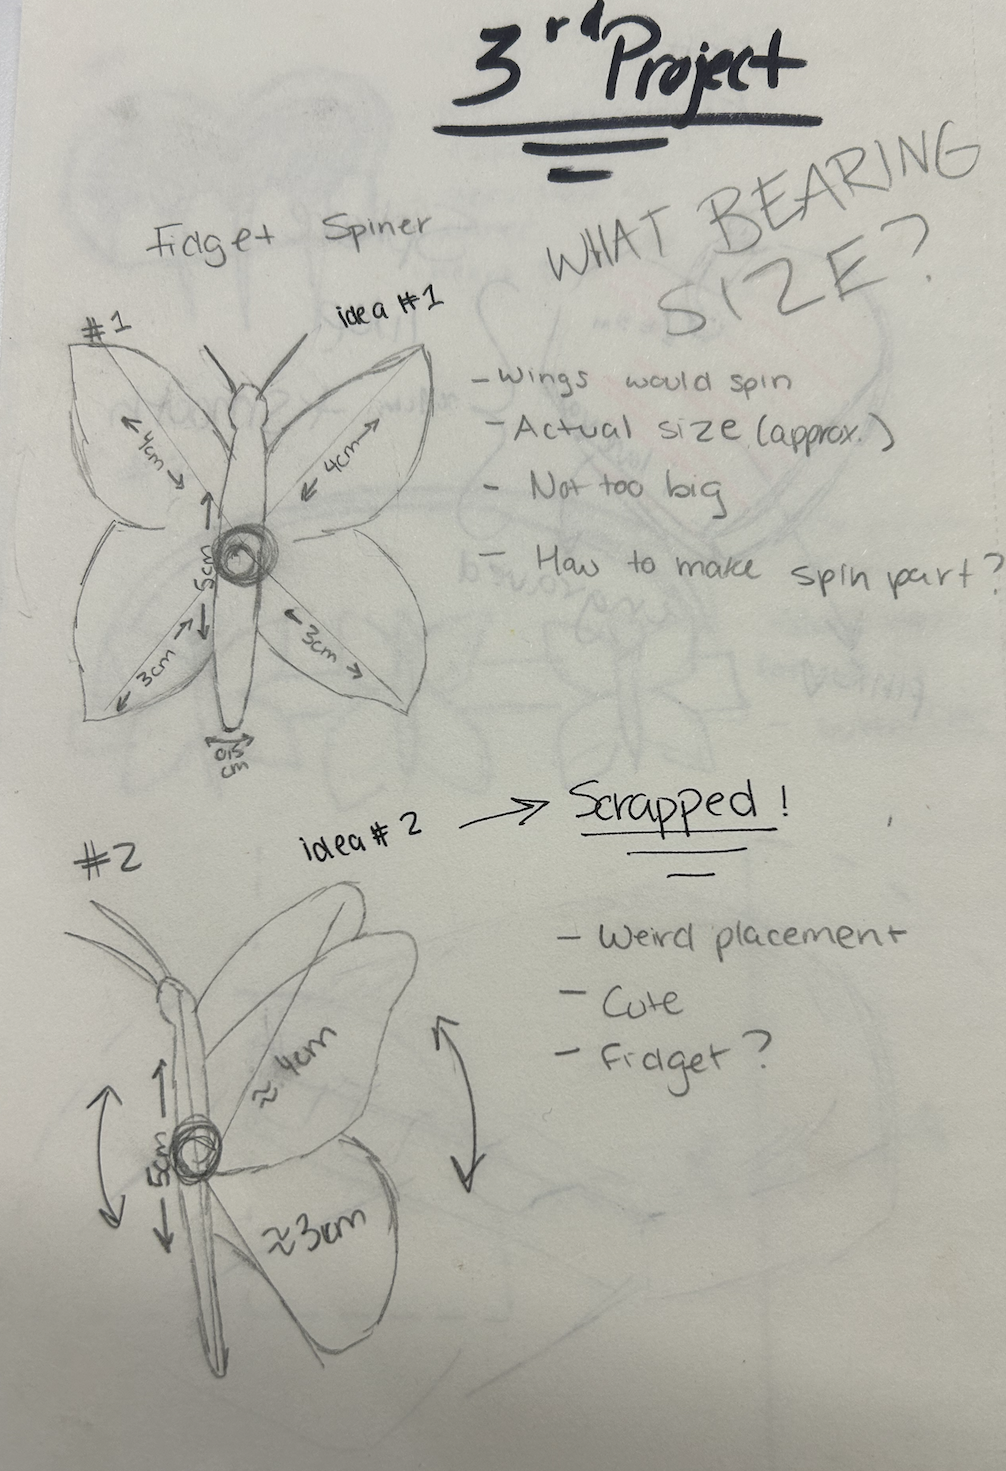 3rd Project
WHAT BEARING
SIZE?
Fidget Spiner
#1
idea #1
4cm
4cm
5cm
3cm
3cm
0,5
cm
- Wings would spin
- Actual size (approx.)
- Not too big
- How to make spin part?
#2
idea #2 → Scrapped!
≈ 4cm
5cm
≈3cm
- Weird placement
- Cute
- Fidget?